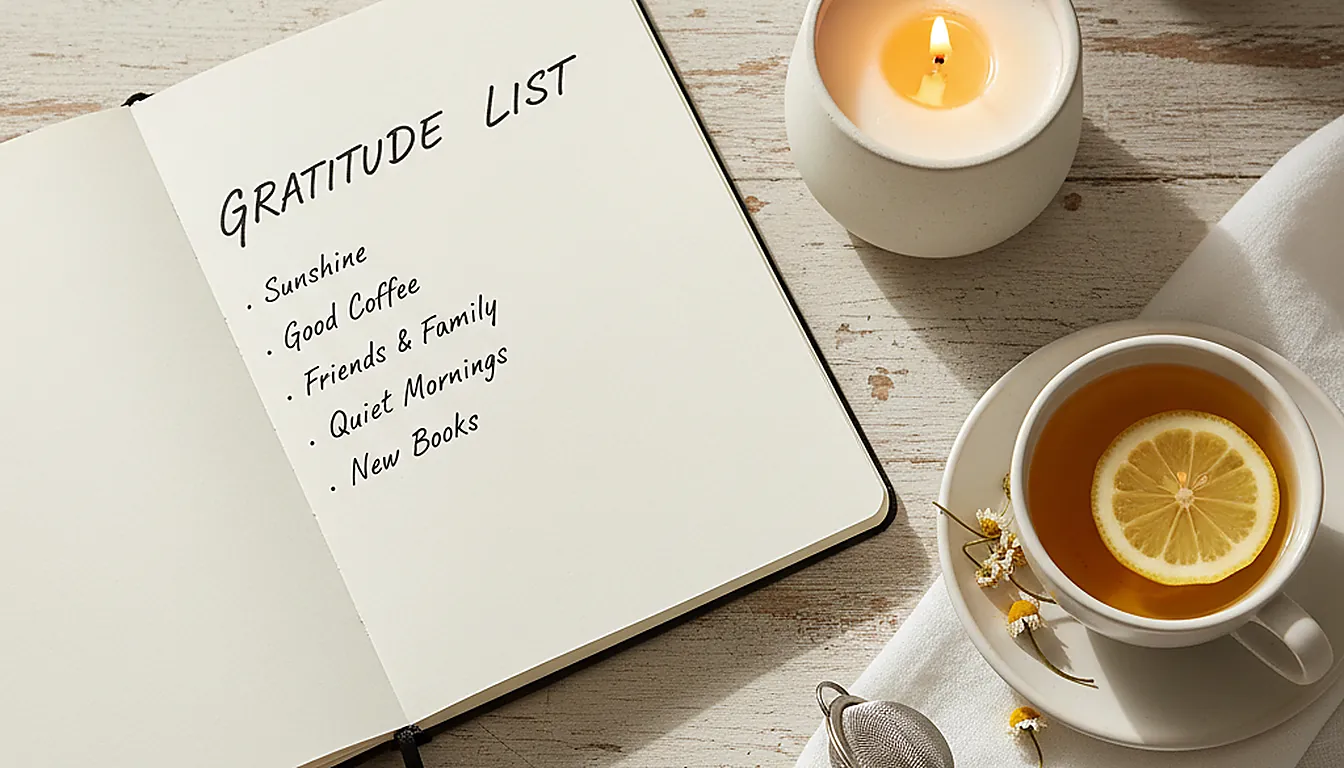 GRATITUDE LIST
. Sunshine
. Good Coffee
. Friends & Family
. Quiet Mornings
. New Books